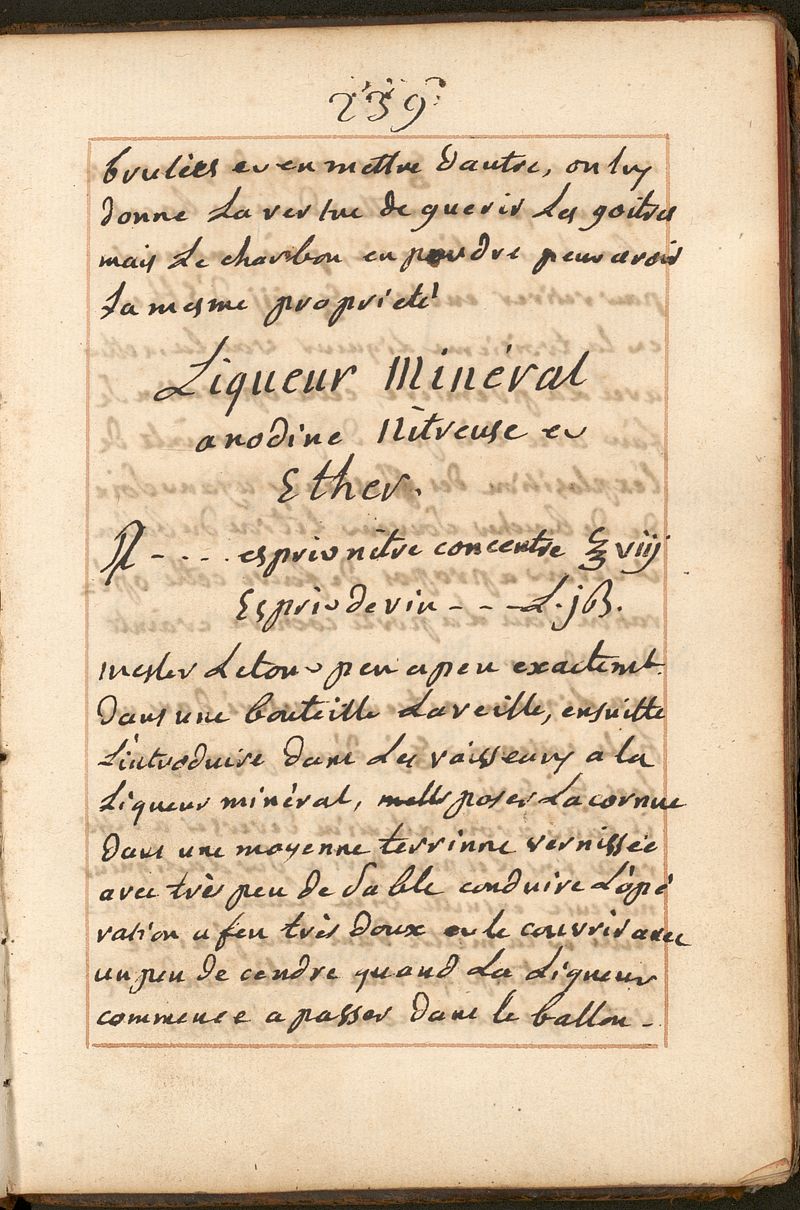 239
brulées et en mettre d'autre, on luy
donne La vertue de guerir Les goitres
mais Le charbon en poudre peut avoir
La mesme proprieté
Liqueur Minéral
anodine Nitreuse et
Ether.
℞ - . . . esprit nitre concentre ℥ viij
Esprit de vin - - - L. jß.
mesler Le tout peu a peu exactemt.
Dans une bouteille La veille, ensuitte
L'introduire dans Les vaisseaux a la
Liqueur minéral, poser La cornue
dans une moyenne terrinne vernissée
avec très peu de sable conduire L'opé
ration a feu très doux et le couvrir avec
un peu de cendre quand La Liqueur
commence a passer dans le ballon -